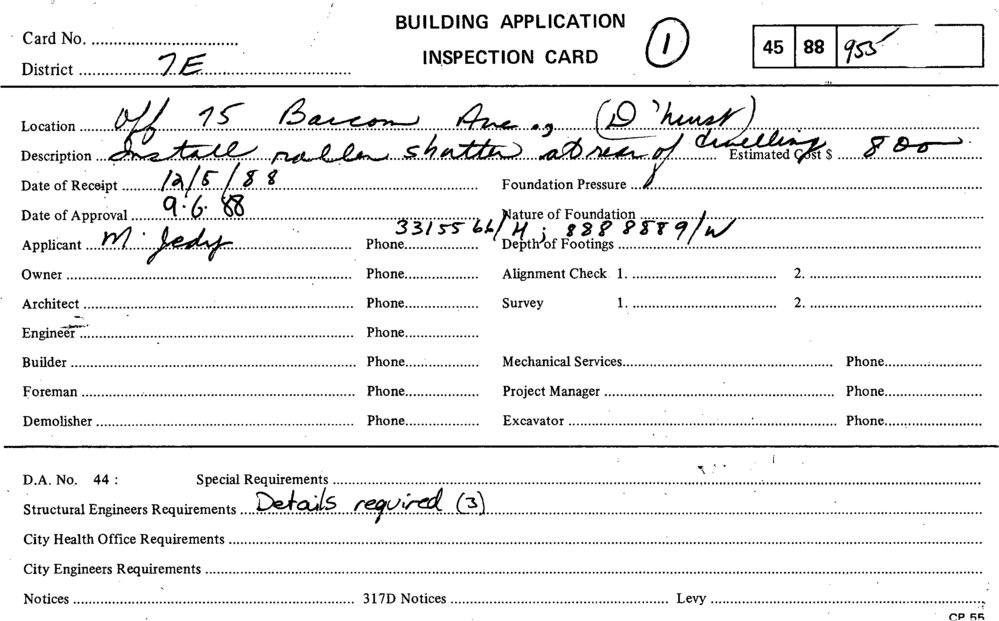 BUILDING APPLICATION
INSPECTION CARD
1
45 88 955
Card No.
District 7E
Location Off 75 Barcom Ave., (D'hurst)
Description Install roller shutter at rear of dwelling Estimated Cost $ 800
Date of Receipt 12/5/88 Foundation Pressure
Date of Approval 9.6.88 Nature of Foundation
Applicant M. Jedy Phone 3315566/H; 8888589/W Depth of Footings
Owner Phone Alignment Check 1. 2.
Architect Phone Survey 1. 2.
Engineer Phone
Builder Phone Mechanical Services Phone
Foreman Phone Project Manager Phone
Demolisher Phone Excavator Phone
D.A. No. 44 : Special Requirements
Structural Engineers Requirements Details required (3)
City Health Office Requirements
City Engineers Requirements
Notices 317D Notices Levy
CP 55